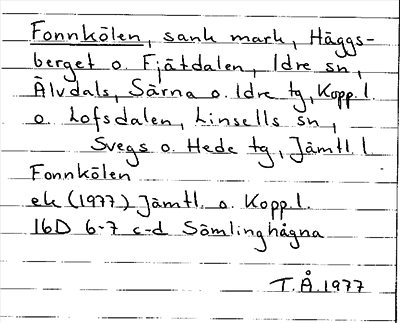 Fonnkölen, sank mark, Häggs-
berget o. Fjätdalen, Idre sn,
Älvdals, Särna o. Idre tg, Kopp. l.
o. Lofsdalen, Linsells sn,
Svegs o. Hede tg, Jämtl. l
Fonnkölen
ek (1977) Jämtl. o. Kopp. l.
16D 6-7 c-d Sömlinghågna
T.Å. 1977